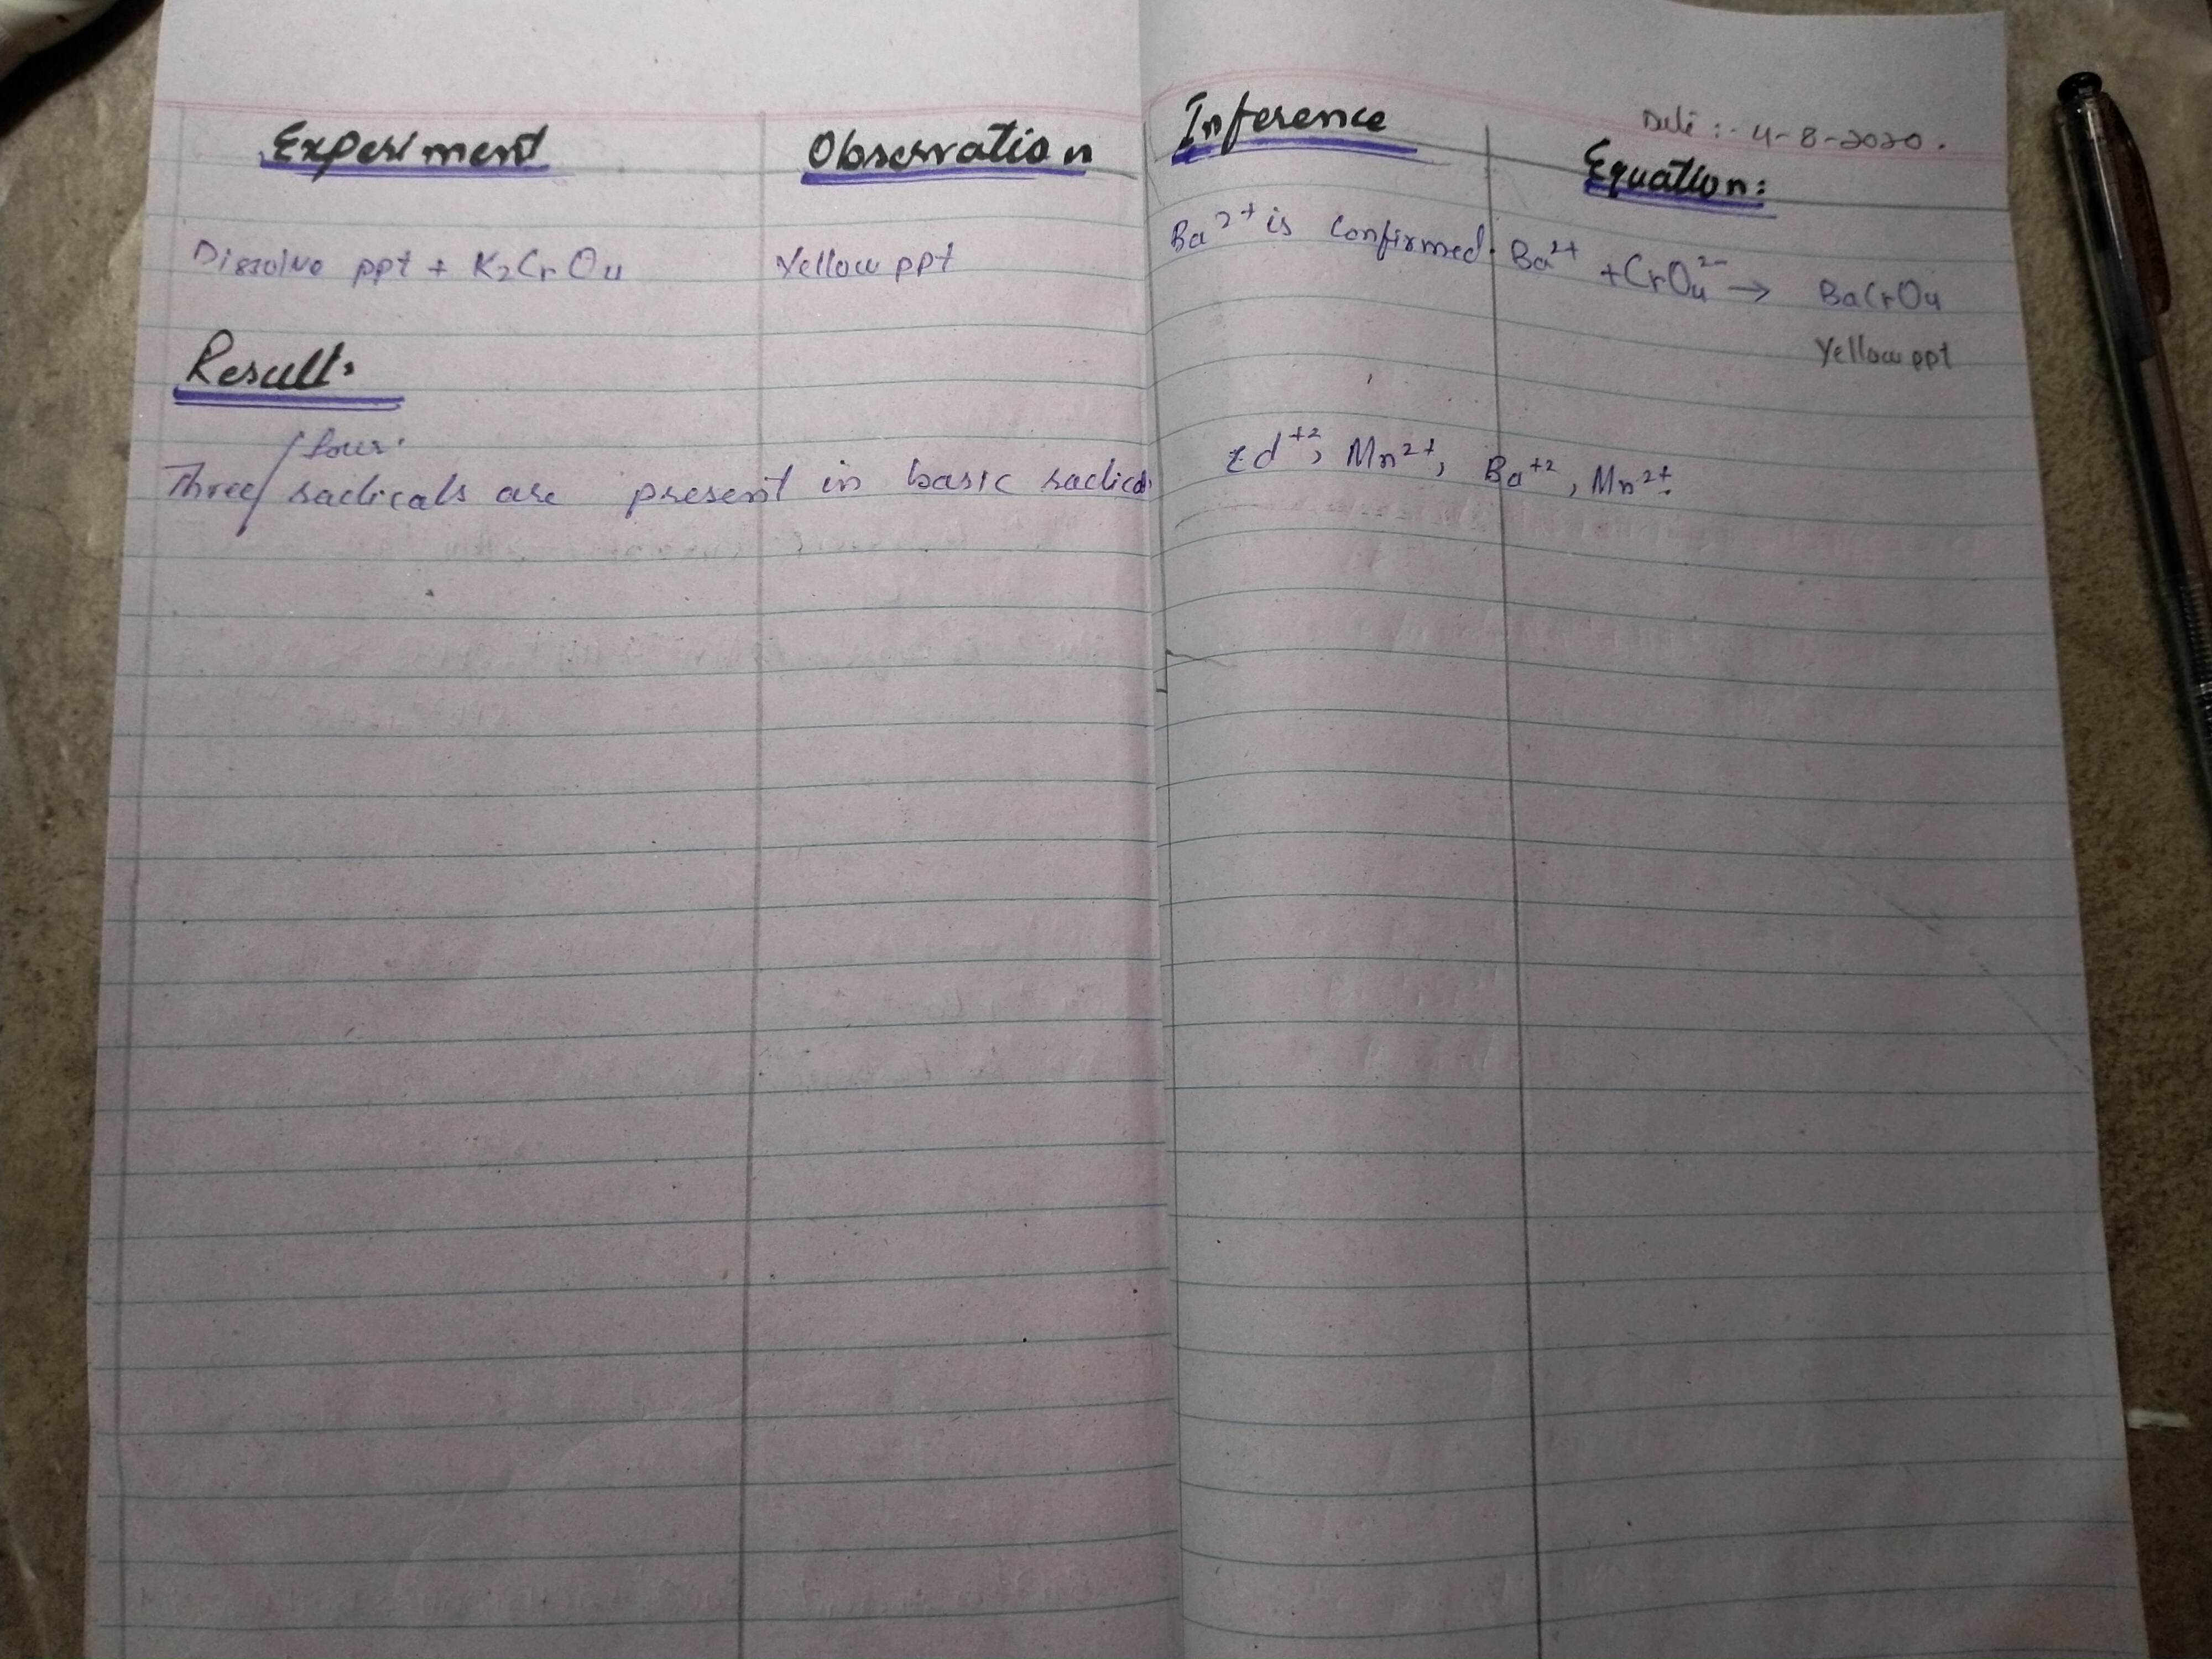 Date :- 4-8-2020.
Experiment Observation Inference Equation:
Dissolve ppt + K₂CrO₄ Yellow ppt Ba²⁺ is confirmed. Ba²⁺ + CrO₄²⁻ → BaCrO₄
Yellow ppt
Result:
/four.
Three/ radicals are present in basic radical Mn²⁺, Ba⁺², Mn²⁺.